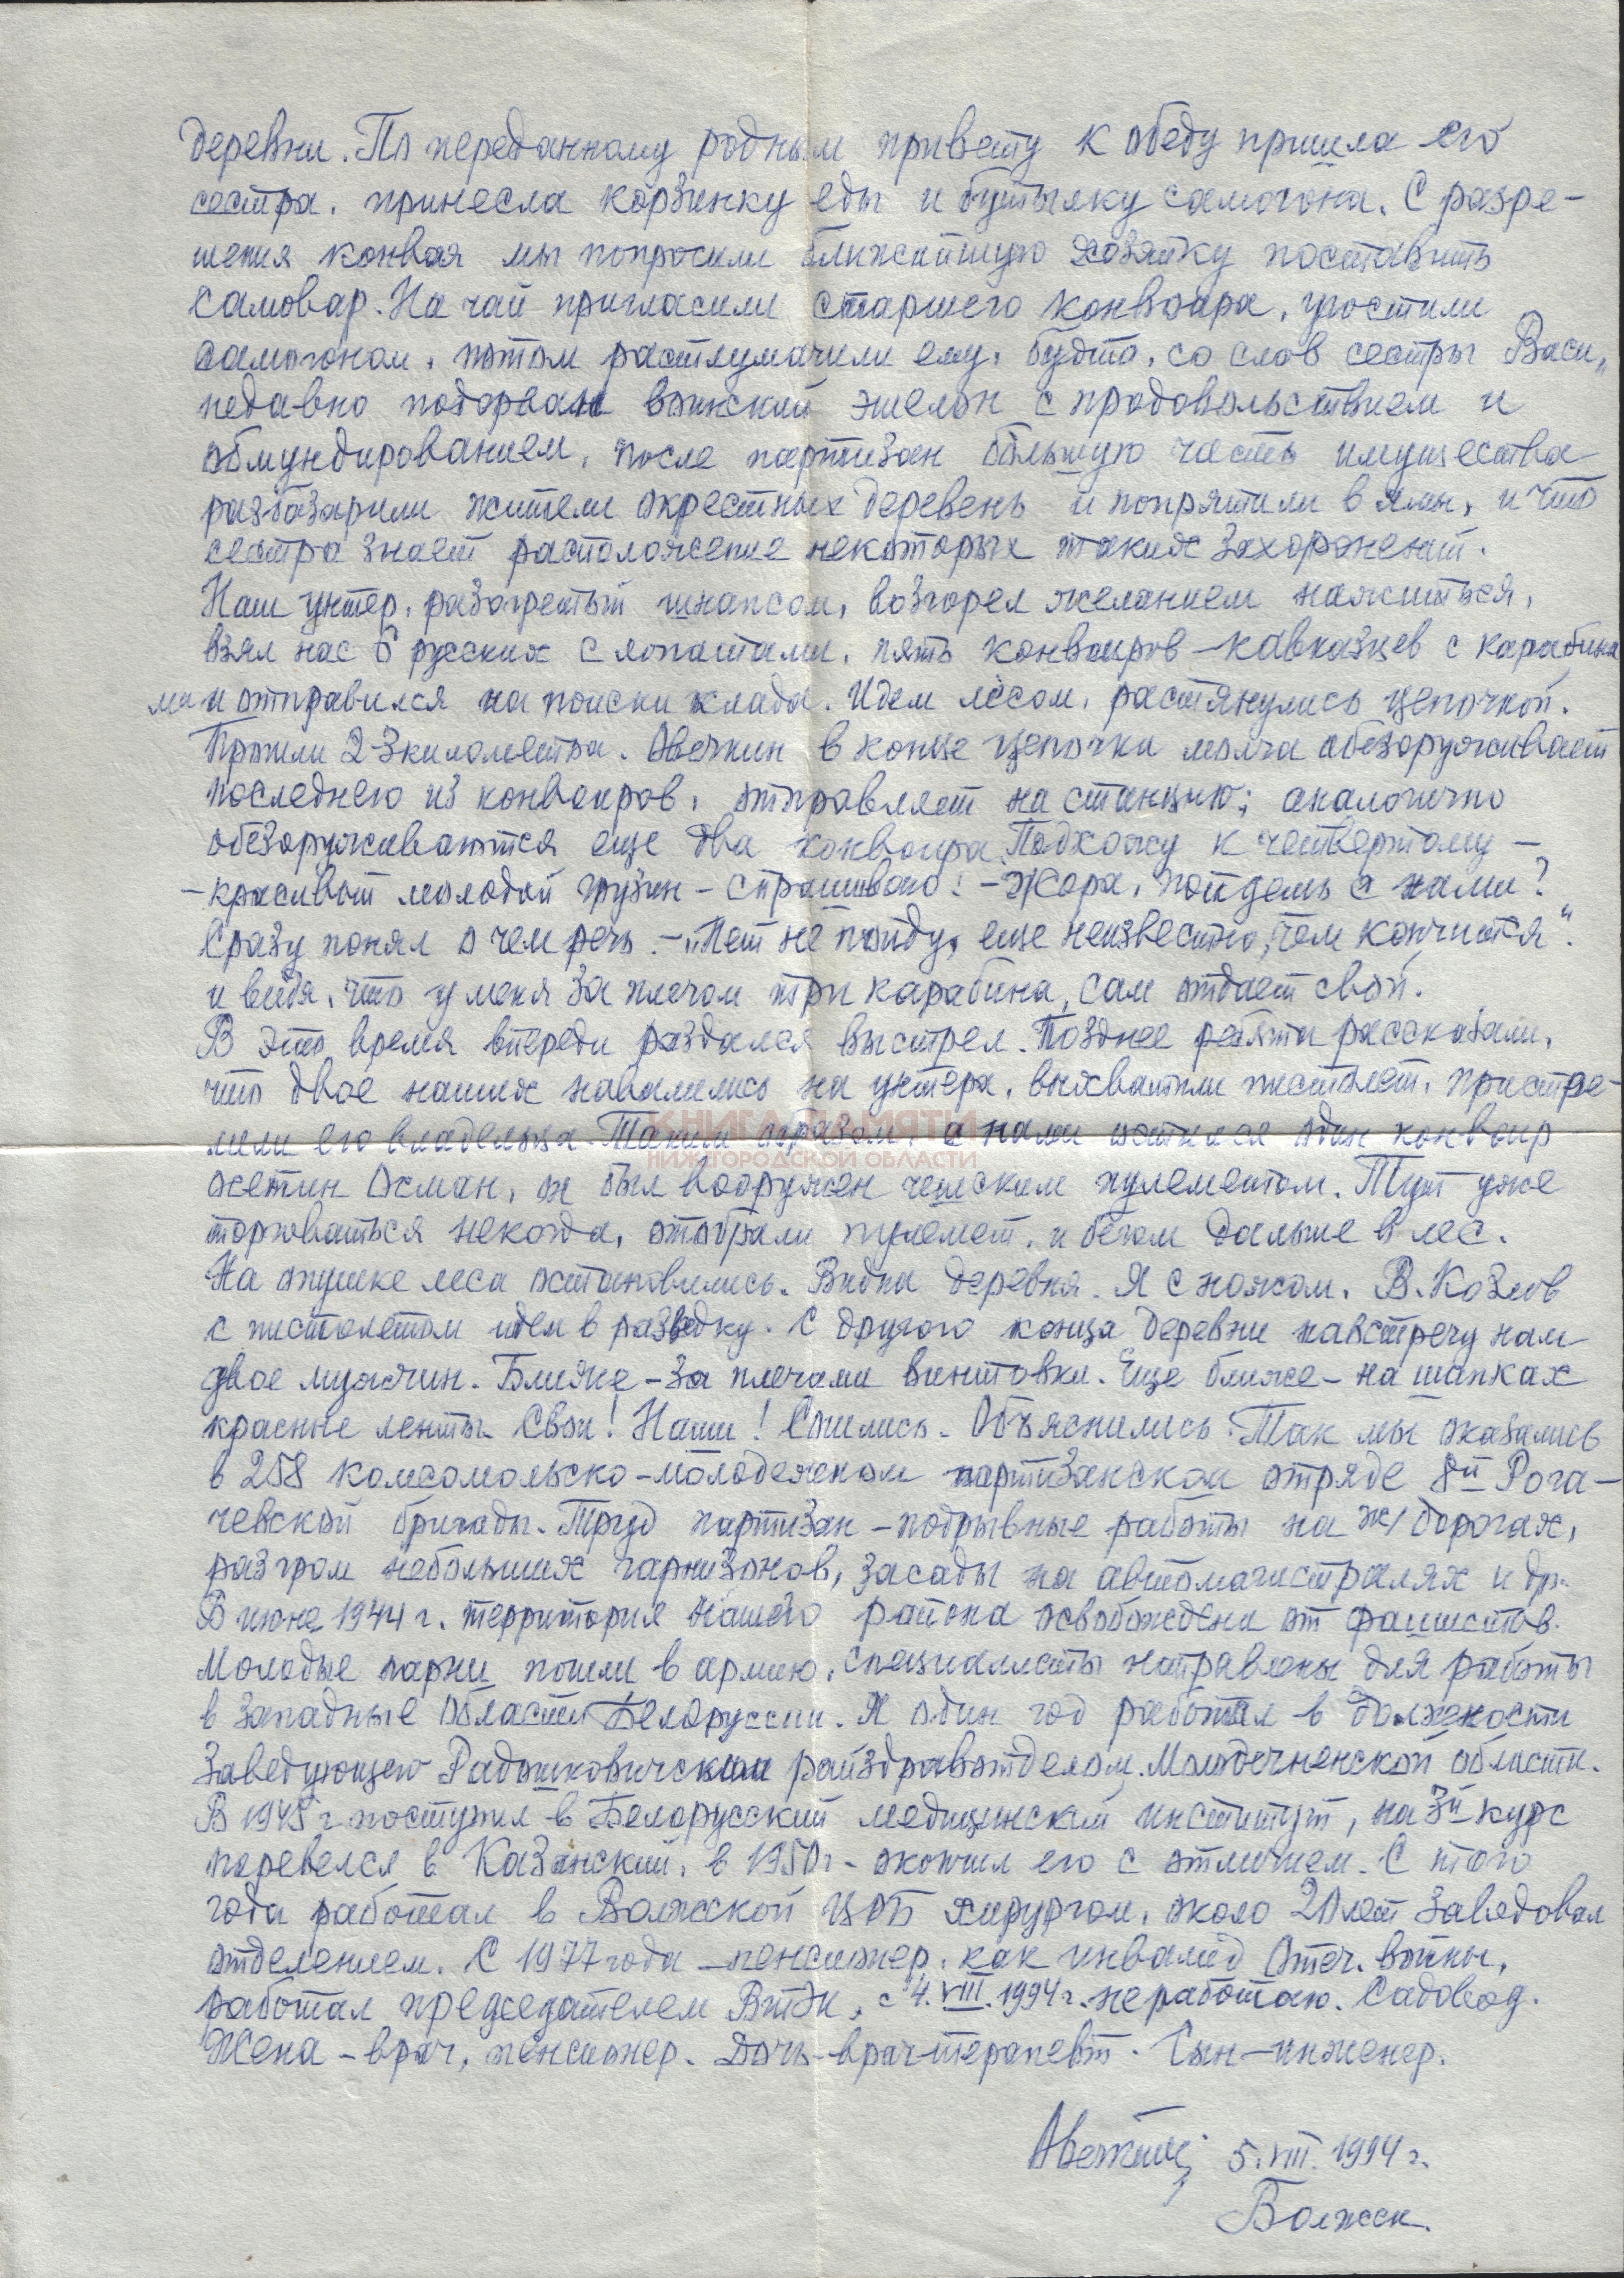 деревни. По переданному родным привету к обеду пришла его
сестра, принесла корзинку еды и бутылку самогона. С разре-
шения конвоя мы попросили ближайшую хозяйку поставить
самовар. На чай пригласили старшего конвоира, угостили
самогоном, потом растлумачили ему, будто, со слов сестры Васи,
недавно подорван воинский эшелон с продовольствием и
обмундированием, после партизан большую часть имущества
разбазарили жители окрестных деревень и попрятали в ямы, и что
сестра знает расположение некоторых таких захоронений.
Наш унтер, разогретый шнапсом, возгорел желанием нажиться,
взял нас 6 русских с лопатами, пять конвоиров-кавказцев с карабина
ми и отправился на поиски клада. Идем лесом, растянулись цепочкой.
Прошли 2-3 километра. Овечкин в конце цепочки молча обезоруживает
последнего из конвоиров, отправляет на станцию; аналогично
обезоруживаются еще два конвоира. Подхожу к четвертому -
- красивый молодой грузин - спрашиваю: - Жора, пойдешь с нами?
Сразу понял о чем речь. - "Нет не пойду, еще неизвестно, чем кончится".
и видя, что у меня за плечом три карабина, сам отдает свой.
В это время впереди раздался выстрел. Позднее ребята рассказали,
что двое наших навалились на унтера, выхватили пистолет, пристре-
лили его владельца. Таким образом, с нами остался один конвоир
осетин Осман, он был вооружен чешским пулеметом. Тут уже
торговаться некогда, отобрали пулемет, и бегом дальше в лес.
На опушке леса остановились. Видна деревня. Я с ножом, В. Козлов
с пистолетом идем в разведку. С другого конца деревни навстречу нам
двое мужчин. Ближе - за плечами винтовки. Еще ближе - на шапках
красные ленты. Свои! Наши! Сошлись. Объяснились. Так мы оказались
в 258 комсомольско-молодежном партизанском отряде 8й Рога-
чевской бригады. Труд партизан - подрывные работы на ж/дорогах,
разгром небольших гарнизонов, засады на автомагистралях и др.
В июне 1944 г. территория нашего района освобождена от фашистов.
Молодые парни пошли в армию, специалисты направлены для работы
в западные области Белоруссии. Я один год работал в должности
заведующего Радошковичским райздравотделом Молодечненской области.
В 1945 г поступил в Белорусский медицинский институт, на 3й курс
перевелся в Казанский, в 1950г - окончил его с отличием. С того
года работал в Волжской ЦРБ хирургом, около 20 лет заведовал
отделением. С 1977 года - пенсионер, как инвалид Отеч. войны,
работал председателем ВТЭК, с 4.VIII.1994 г. не работаю. Садовод.
Жена - врач, пенсионер. Дочь - врач-терапевт. Сын - инженер.
5.VIII.1994 г.
Волжск.
КНИГА ПАМЯТИ
НИЖЕГОРОДСКОЙ ОБЛАСТИ